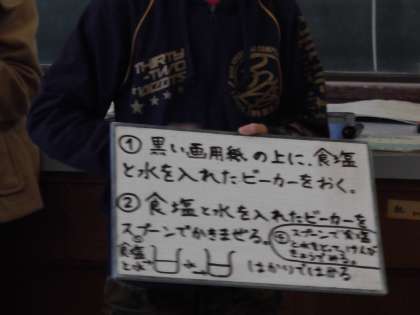 THIRTY
-TWO
① 黒い画用紙の上に、食塩
と水を入れたビーカーをおく。
② 食塩と水を入れたビーカーを
スプーンでかきまぜる。
④スプーンで食塩
と水をとって、けんび
きょうでみる。
食塩
と水
はかりではかる